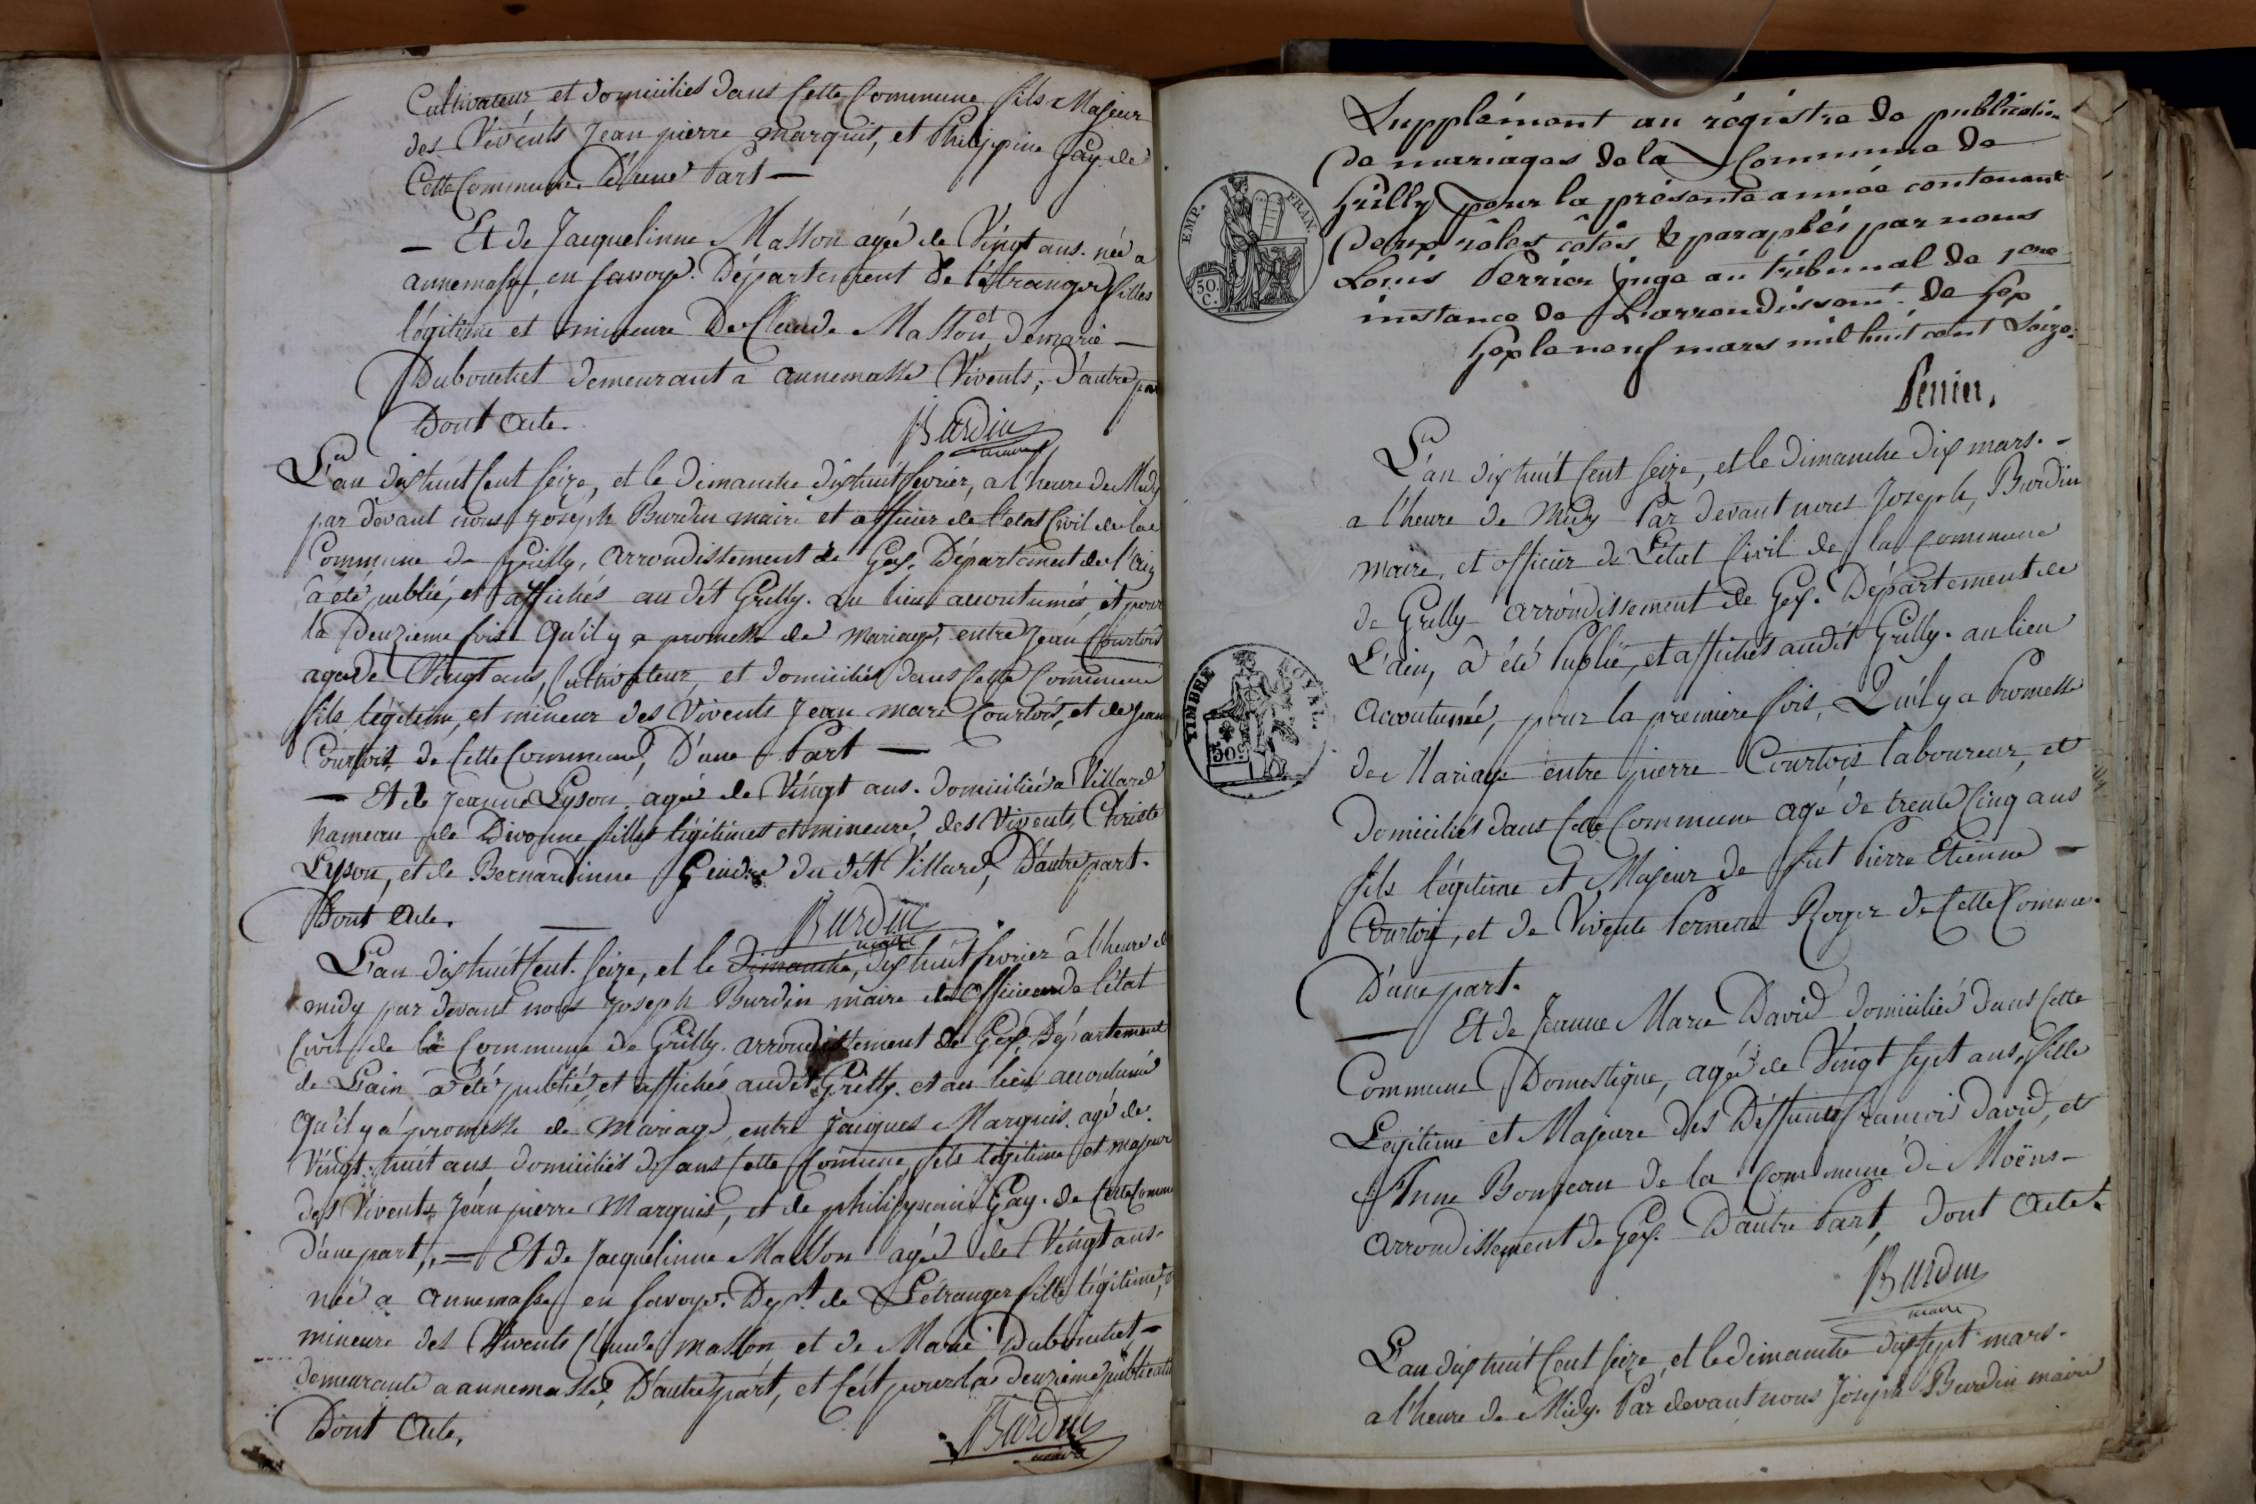 Cultivateur et domiciliés dans Cette Commune fils Majeur
des Vivénts Jean pierre marquis, et Philippine Gay de
Cette Commune. D'une Part —
— Et de Jacquelinne Masson agée de Vingt ans. née a
annemasse, en Savoye. Département de l'étranger filles
légitime et mineure De Claude Masson et de marie —
Dubouchet demeurant a annemasse Vivents, d'autre par
Dont Acte.
Burdin
maire
L'an dixhuit Cent Seize, et le dimanche dixhuit fevrier, a l'heure de Midy
par devant nous joséph Burdin maire et officier de l'état Civil de la
Commune de Grilly, arrondissement de Gex, Département de l'Ain
à été publié, et affichés au dit Grilly. au lieu accoutumés et pour
la Deuzieme fois Qu'il y a promesse de mariage, entre Jean Courtois
age de Vingt ans, Cultivateur, et domiciliés dans Cette Commune
fils légitime, et mineur des Vivents Jean marc Courtois, et de Jean
Courtois de Cette Commune, D'une Part —
— Et de Jeanne Lyson, agée de Vingt ans. domiciliée a Villard
hameau de Divonne filles légitimes et mineure, des Vivents, Christe
Lyson, et de Bernardinne Gendre du dit Villard, D'autre part.
Dont Acte.
Burdin
maire
L'an dixhuit Cent. Seize, et le dimanche, dixhuit fevrier à l'heure de
midy par devant nous joseph Burdin maire et Officier de l'état
Civil de la Commune de Grilly. arrondissement de Gex, Département
de Lain à été publié, et affichés audit Grilly. et au lieu accoutumé
Qu'il y a promesse de Mariage, entre Jacques Marquis. agé de.
Vingt. huit ans, domiciliés dans Cette Commune, fils légitime et majeur
des Vivents Jean pierre Marquis, et de Gay. de Cette Commu
d'une part, = Et de Jacquelinne Masson agée de Vingt ans.
née a annemasse en Savoye. Dept. de L'étranger fille légitime,
mineure des Vivents Claude Masson et de Marie Dubouchet —
demeurante a annemasse, D'autre part, et C'est pour la deuzieme publicati
Dont Acte,
Burdin
maire
Supplément au régistre de publication
de mariages de la Commune de
Grilly pour la présente année contenant
Deux rôles côtés & paraphés par nous
Louis Perrier juge au tribunal de 1ere
instance de L'arrondissemt. de Gex
Gex le neuf mars mil huit cent Seize.
Perrier.
EMP. FRAN.
50. C.
TIMBRE ROYAL.
50c
L'an dix huit Cent Seize, et le dimanche dix mars. —
a l'heure de Midy Par devant nous Joseph, Burdin
maire, et officier de L'état Civil de la commune
de Grilly arrondissement de Gex. Département de
L'ain, à été Publié, et affichés audit Grilly. au lieu
accoutumé, pour la première fois, Qu'il y a Promesse
de Mariage entre pierre Courtois laboureur, et
domiciliés dans Cette Commune agé de trente Cinq ans
fils légitime et Majeur de fut Pierre Etienne —
Courtois, et de Vivente Pernette Roger de Cette Commune.
D'une part.
— Et de Jeanne Marie David domiciliée dans Cette
Commune Domestique, agée de Vingt sept ans, fille
Légitime et Majeure des Deffunts francois david, et
Anne Bonjean de la Commune de Moëns —
arrondissement de Gex. D'autre Part, dont Acte.
Burdin
maire
L'an dix huit Cent Seize, et le dimanche dixsept mars.
a l'heure de Midy. Par devant nous Joseph Burdin maire